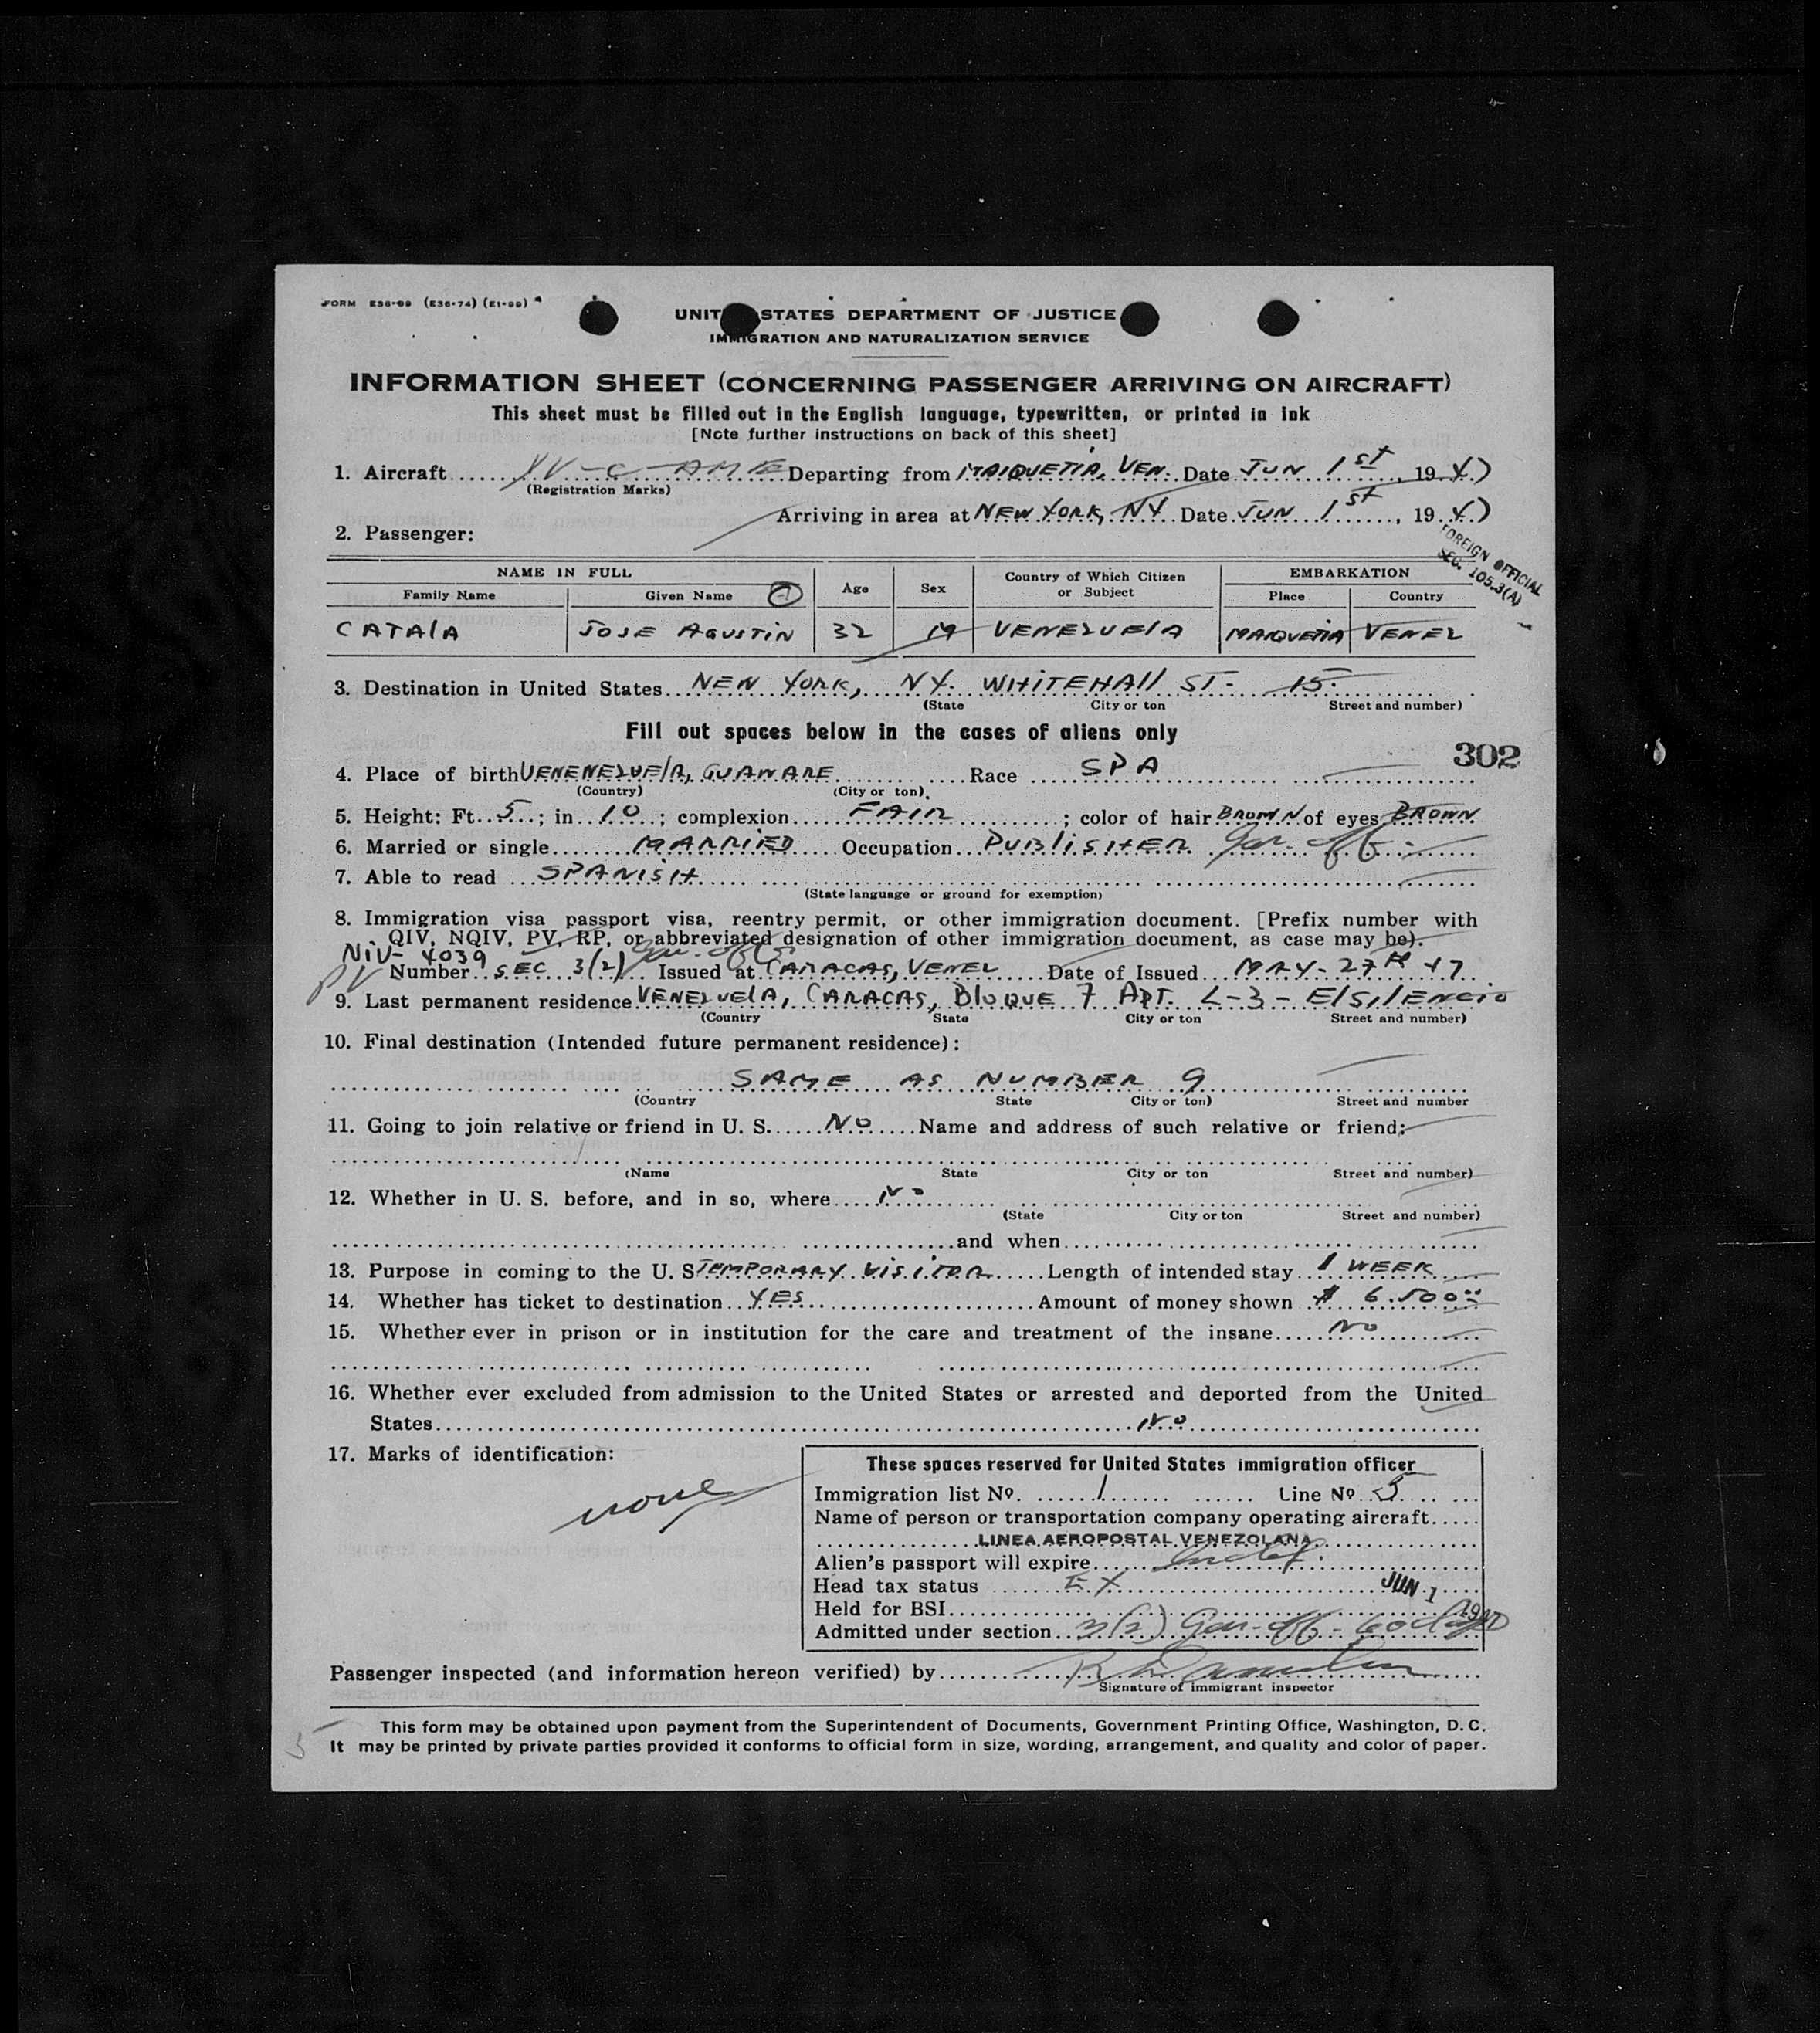 FORM E36-99 (E36-74) (E1-99)
UNIT STATES DEPARTMENT OF JUSTICE
IMMIGRATION AND NATURALIZATION SERVICE
INFORMATION SHEET (CONCERNING PASSENGER ARRIVING ON AIRCRAFT)
This sheet must be filled out in the English language, typewritten, or printed in ink
[Note further instructions on back of this sheet]
1. Aircraft YV-C-AME Departing from MAIQUETIA, VEN. Date JUN 1st, 1947
(Registration Marks)
Arriving in area at NEW YORK, NY Date JUN 1st, 1947
2. Passenger:
FOREIGN OFFICIAL
SEC. 105.3(A)
NAME IN FULL Age Sex Country of Which Citizen or Subject EMBARKATION
Family Name Given Name Place Country
CATALA JOSE AGUSTIN 32 M VENEZUELA MAIQUETIA VENEZ
3. Destination in United States NEW YORK, NY. WHITEHALL ST- 15-
(State City or ton Street and number)
Fill out spaces below in the cases of aliens only
302
4. Place of birth VENENEZUELA, GUANARE Race SPA
(Country) (City or ton)
5. Height: Ft. 5; in 10; complexion FAIR; color of hair BROWN of eyes BROWN
6. Married or single MARRIED Occupation PUBLISHER Gov. off.
7. Able to read SPANISH
(State language or ground for exemption)
8. Immigration visa passport visa, reentry permit, or other immigration document. [Prefix number with
QIV, NQIV, PV, RP, or abbreviated designation of other immigration document, as case may be).
NIV- 4039
PV Number SEC 3(2) Gov. off. Issued at CARACAS, VENEZ Date of Issued MAY- 27th 47
9. Last permanent residence VENEZUELA, CARACAS, BLOQUE 7 APT. L-3- El SILENCIO
(Country State City or ton Street and number)
10. Final destination (Intended future permanent residence):
SAME AS NUMBER 9
(Country State City or ton) Street and number
11. Going to join relative or friend in U. S. NO Name and address of such relative or friend:
(Name State City or ton Street and number)
12. Whether in U. S. before, and in so, where NO
(State City or ton Street and number)
and when
13. Purpose in coming to the U. S TEMPORARY VISITOR Length of intended stay 1 WEEK
14. Whether has ticket to destination YES Amount of money shown $ 6.500.00
15. Whether ever in prison or in institution for the care and treatment of the insane NO
16. Whether ever excluded from admission to the United States or arrested and deported from the United
States NO
17. Marks of identification:
none
These spaces reserved for United States immigration officer
Immigration list No. 1 Line No 5
Name of person or transportation company operating aircraft
LINEA AEROPOSTAL VENEZOLANA
Alien's passport will expire Indef.
Head tax status EX JUN 1 1947
Held for BSI
Admitted under section 3(2) Gov- off- 60 days
Passenger inspected (and information hereon verified) by
Signature of immigrant inspector
This form may be obtained upon payment from the Superintendent of Documents, Government Printing Office, Washington, D. C.
It may be printed by private parties provided it conforms to official form in size, wording, arrangement, and quality and color of paper.
5